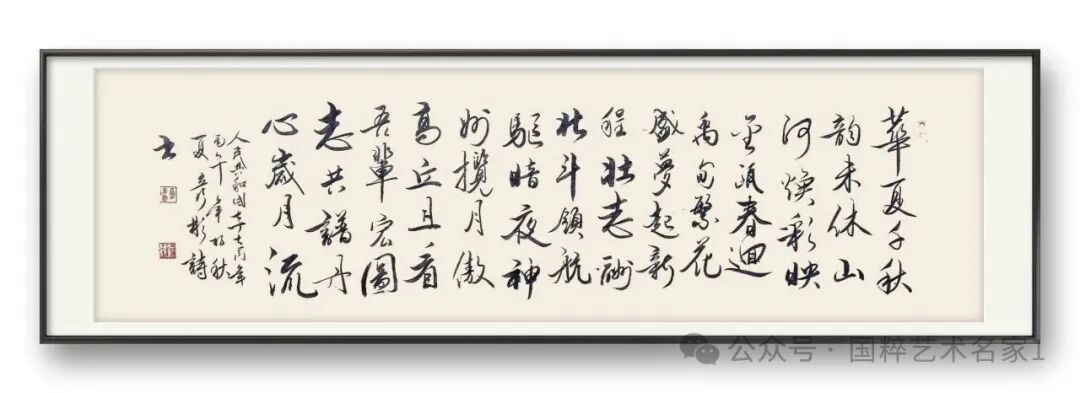 華夏千秋
韵未休山
河焕彩映
金瓯春迴
禹甸繁花
盛夢起新
程壮志酬
北斗領航
驅暗夜神
州攬月傲
高丘且看
吾輩宏圖
志共譜丹
心歲月流
人民共和國七十七周年
丙午年初秋
夏彦彬詩
书
公众号 · 国粹艺术名家1